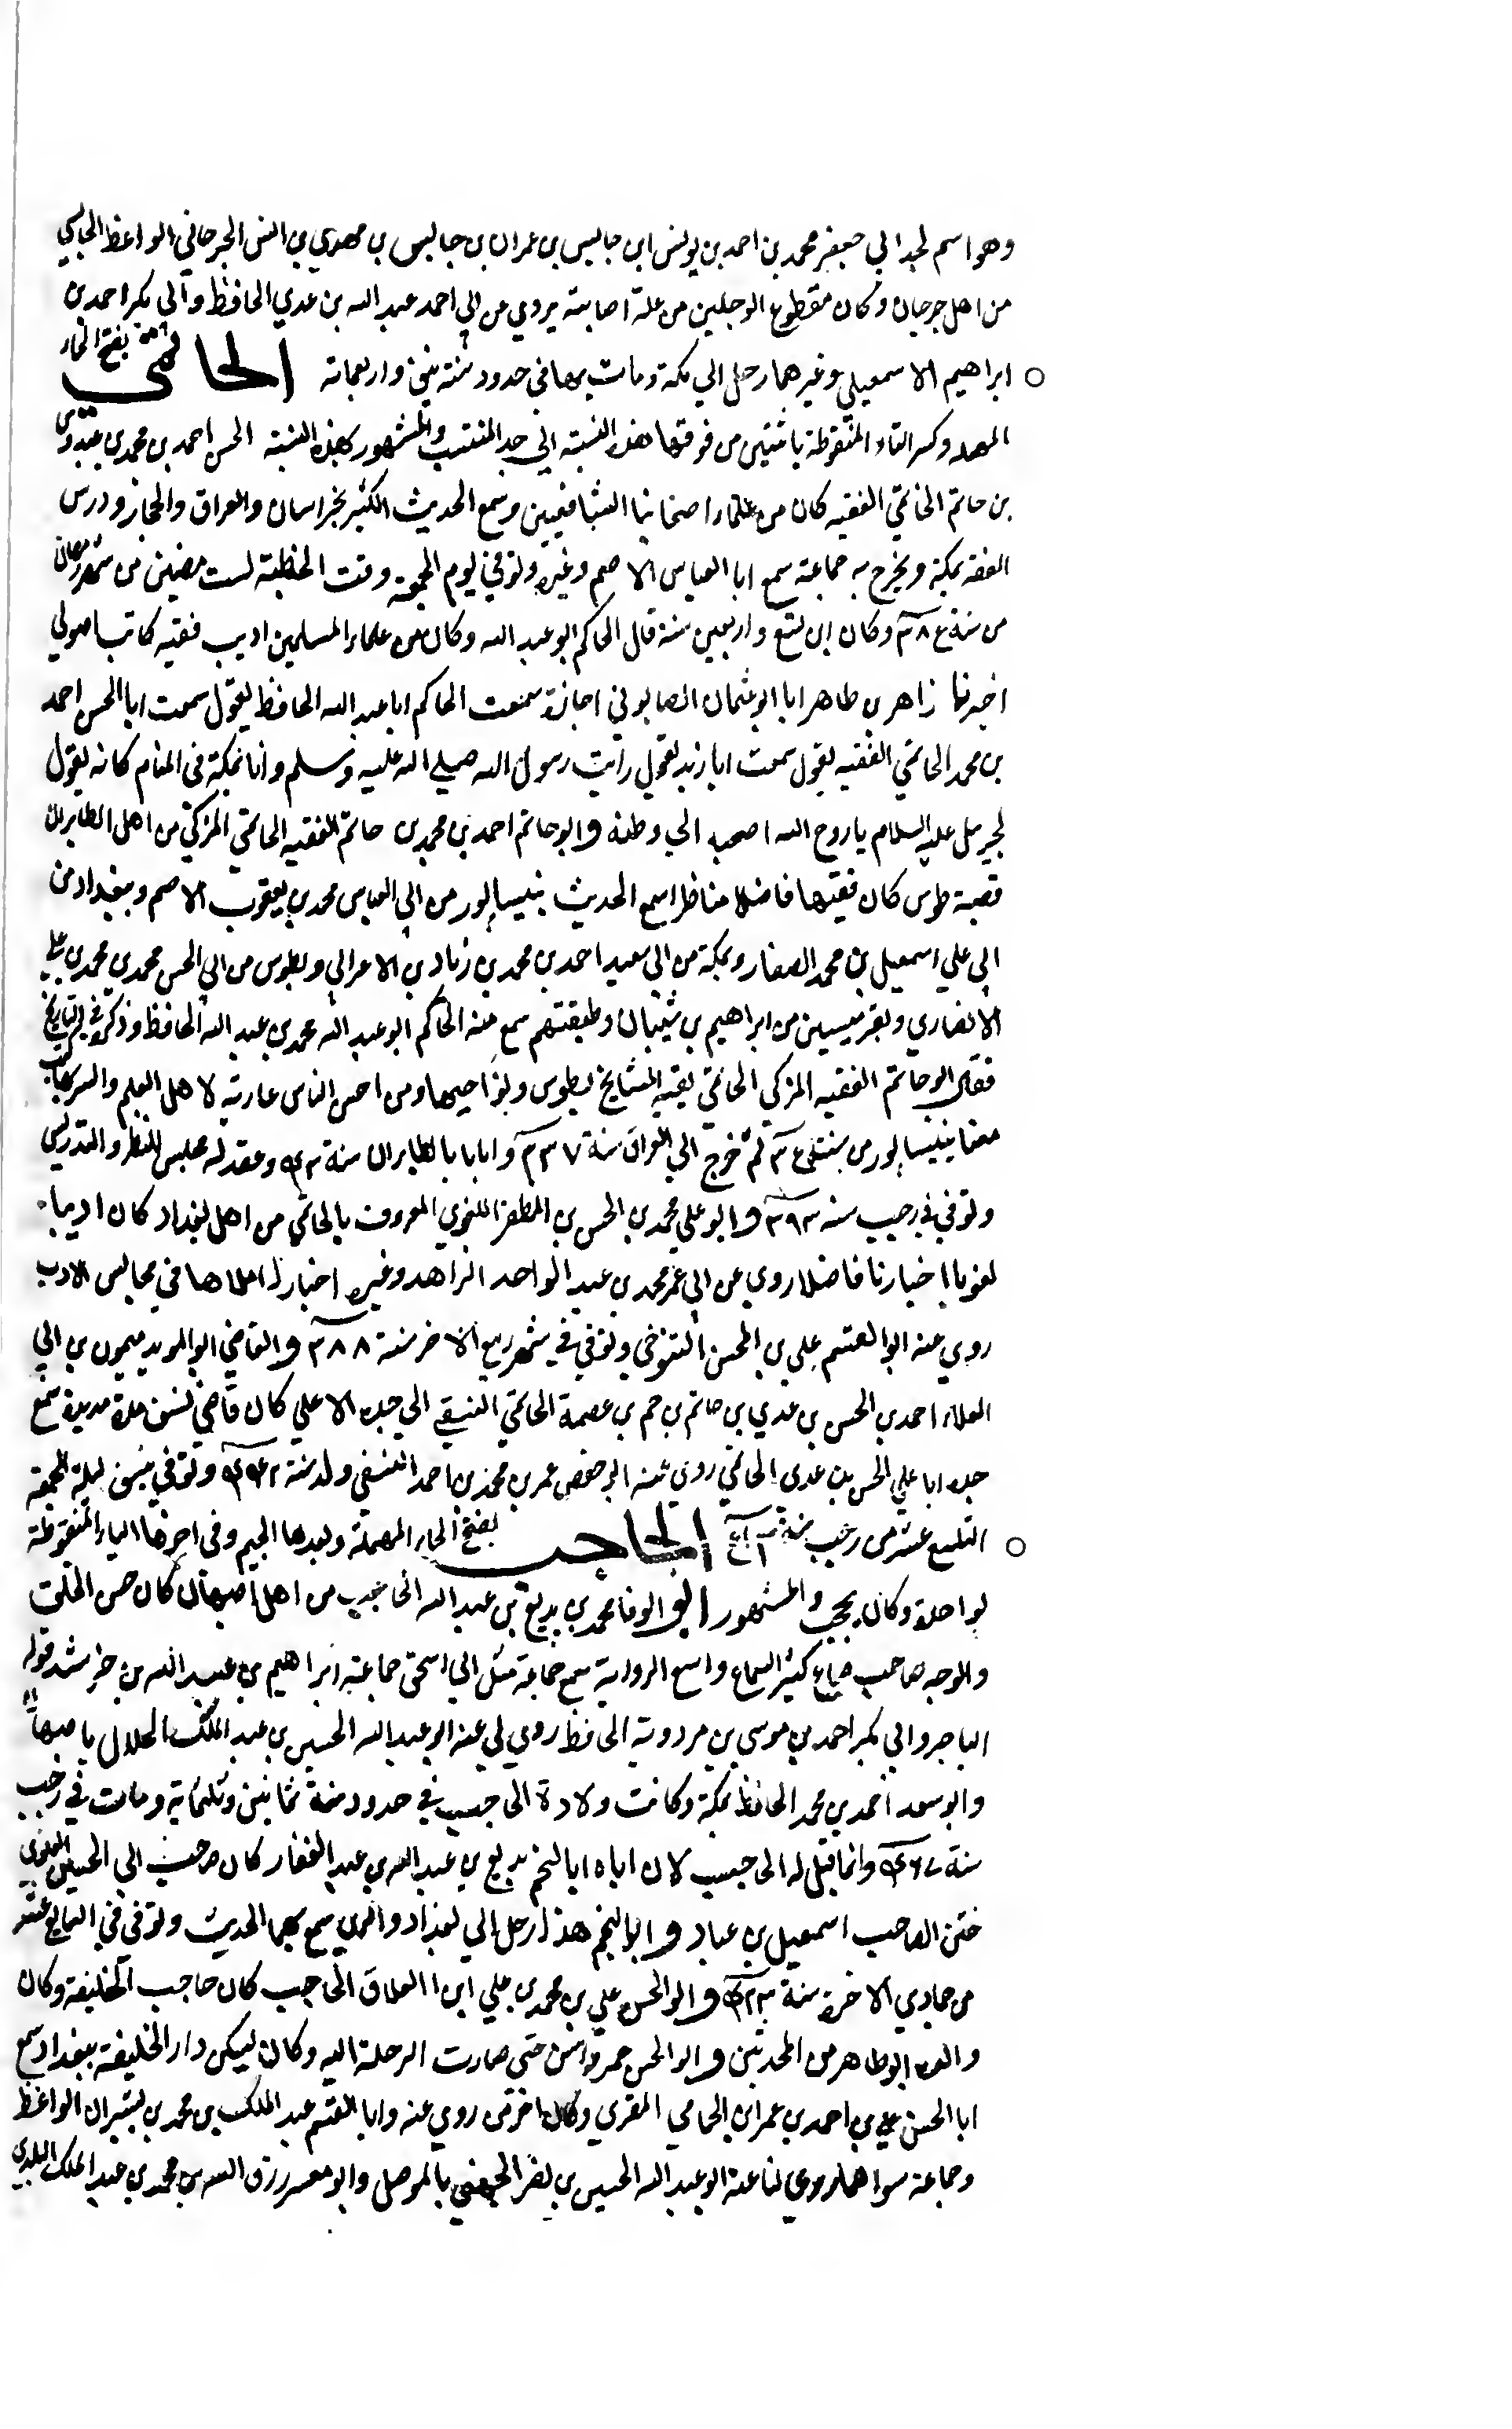 وهو اسم لجد ابي جعفر محمد بن احمد بن يونس ابن جاليس بن عمران بن جاليس بن مهدي بن انس الجرجاني الواعظ الجاليسي
من اهل جرجان وكان مقطوع الرجلين من علة اصابته يروي عن ابي احمد عبد الله بن عدي الحافظ وابي بكر احمد بن
ابراهيم الاسمعيلي وغيرهما رحل الي مكة ومات بها في حدود سنة واربعماته الحاتمي بفتح الحاء
المهمله وكسر التاء المنقوطة باثنتين من فوقها هذه النسبة الي جد المنتسب والمشهور بهذه النسبة الحسن احمد بن محمد بن عبدوس
بن حاتم الحاتمي الفقيه كان من علماء اصحابنا الشافعيين وسمع الحديث الكثير بخراسان والعراق والحجاز ودرس
الفقه بمكة وتخرج به جماعة سمع ابا العباس الاصم وغيره وتوفي يوم الجمعة وقت الخطبة لست مضين من شهر رمضان
من سنة وكان ابن تسع واربعين سنة قال الحاكم ابو عبد الله وكان من علماء المسلمين اديب فقيه كاتب اصولي
اخبرنا زاهر بن طاهر ابا ابو عثمان الصابوني اجازة سمعت الحاكم ابا عبد الله الحافظ يقول سمعت ابا الحسن احمد
بن محمد الحاتمي الفقيه يقول سمعت ابا زيد يقول رايت رسول الله صلى الله عليه وسلم وانا بمكة في المنام كانه يقول
لجبريل عليه السلام ياروح الله اصحبه الي وطنه وابو حاتم احمد بن محمد بن حاتم الفقيه الحاتمي المزكي من اهل الطابران
قصبة طوس كان فقيها فاضلا مناظرا سمع الحديث بنيسابور من ابي العباس محمد بن يعقوب الاصم وببغداد من
ابي علي اسمعيل بن محمد الصفار وبمكة من ابي سعيد احمد بن محمد بن زياد بن الاعرابي وبطوس من ابي الحسن محمد بن محمد بن علي
الانصاري وبقرميسين من ابراهيم بن شيبان وطبقتهم سمع منه الحاكم ابو عبد الله محمد بن عبد الله الحافظ وذكره في التاريخ
فقال ابو حاتم الفقيه المزكي الحاتمي بقية المشايخ بطوس ونواحيها ومن احسن الناس عارية لاهل العلم
معنا بنيسابور من ثم خرج الي العراق سنة ٣٣٧ وابابا بالطابران سنة وعقد له مجلس النظر والتدريس
وتوفي في رجب سنة ٣٩٣ وابو علي محمد بن الحسن بن المظفر اللغوي المعروف بالحاتمي من اهل بغداد كان اديبا
لغويا اخباريا فاضلا روي عن ابي عمر محمد بن عبد الواحد الزاهد وغيره اخبارا املاها في مجالس الادب
روي عنه ابو القسم علي بن المحسن التنوخي وتوفي في شهر ربيع الاخر سنة ٣٨٨ والقاضي ابو المويد ميمون بن ابي
العلاء احمد بن الحسن بن عدي بن حاتم بن حم بن عصمة الحاتمي النسفي الي جده الاعلي كان قاضي نسف مدة مديدة سمع
جده ابا علي الحسن بن عدى الحاتمي روي عنه ابو حفص عمر بن محمد بن احمد النسفي ولد سنة وتوفي بنسف ليلة الجمعة
التاسع عشر من رجب سنة الحاجب بفتح الحاء المهملة وبعدها الجيم وفي اخرها الباء المنقوطة
بواحدة وكان يحجب والمشهور ابو الوفا محمد بن بديع بن عبد الله الحاجب من اهل اصبهان كان حسن الخلق
والوجه صاحب ضياع كثير السماع واسع الرواية سمع جماعة مثل ابي اسحق جماعة ابراهيم بن عبد الله بن خرشيد قوله
التاجر وابي بكر احمد بن موسي بن مردوية الحافظ روي لي عنه ابو عبد الله الحسين بن عبد الملك الخلال باصبهان
وابو سعد احمد بن محمد الحافظ بمكة وكانت ولادة الحاجب في حدود سنة ثمانين وثلثماية ومات في رجب
سنة وانما قيل له الحاجب لان اباه ابا النجم بديع بن عبد الله بن عبد الغفار كان حاجب ابي الحسين العلوي
ختن الصاحب اسمعيل بن عباد وابو النجم هذا رحل الي بغداد والري سمع بهما الحديث وتوفي في السابع عشر
من جمادي الاخرة سنة وابو الحسن علي بن محمد بن علي ابن العلاف الحاجب كان حاجب الخليفة وكان
والده ابو طاهر من المحدثين وابو الحسن عمر واسن حتى صارت الرحلة اليه وكان يسكن دار الخليفة ببغداد سمع
ابا الحسن علي بن احمد بن عمر ابن الحمامي المقري وكان اخر من روي عنه وابا القسم عبد الملك بن محمد بن بشران الواعظ
وجماعة سواهما روي لنا عنه ابو عبد الله الحسين بن نصر الجهني بالموصل وابو معمر رزق الله بن محمد بن عبد الملك البلدي